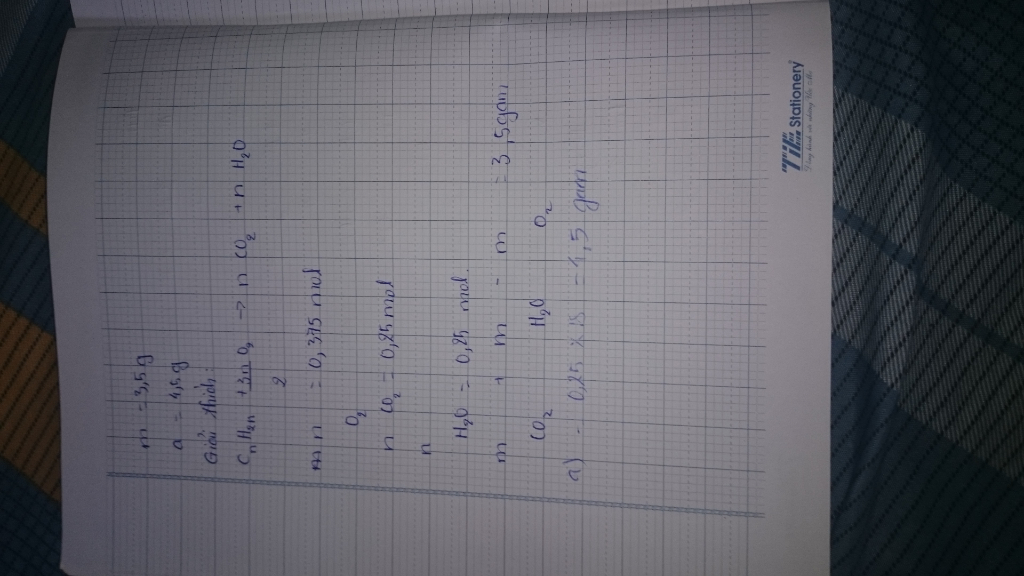 m = 3,5g
a = 4,5g
Giải thích:
CnH2n + 3n/2 O2 -> n CO2 + n H2O
n O2 = 0,375 mol
n CO2 = 0,25 mol
n H2O = 0,25 mol
m CO2 + m H2O - m O2 = 3,5gam
a) = 0,25 x 18 = 4,5 gam
Tiến Stationery